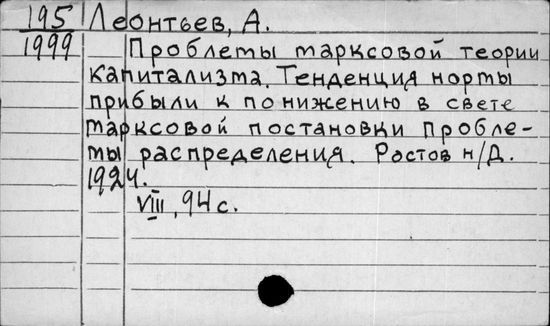 195
1999
Леонтьев, А.
Проблемы марксовой теории
капитализма. Тенденция нормы
прибыли к понижению в свете
марксовой постановки пробле-
мы распределения. Ростов н/Д.
1924.
VIII, 94 с.